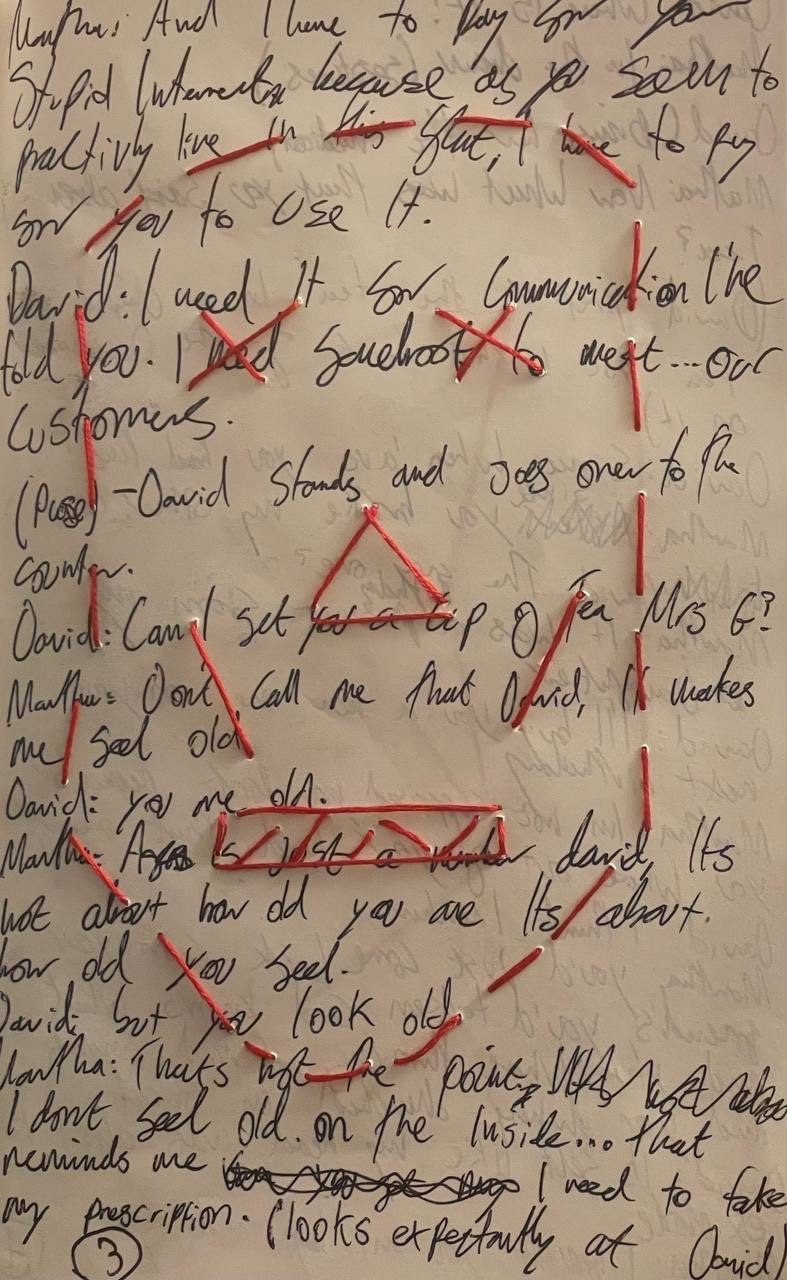 Martha: And I have to Pay for your
Stupid Internet because as you seem to
practivly live in this flat, I have to pay
for you to use It.
David: I need It for Communication I've
told you. I need somehow to meet...our
Customers.
(Puase) - David Stands and goes over to the
counter.
David: Can I get you a Cup of Tea Mrs G?
Martha: Don't Call me that David, It makes
me feel old.
David: you are old.
Martha: Age Is Just a number david, Its
not about how old you are Its about.
how old you feel.
David: but you look old.
Martha: Thats not the point,
I dont feel old. on the Inside... that
reminds me I need to take
my prescription. (looks expectantly at David)
3